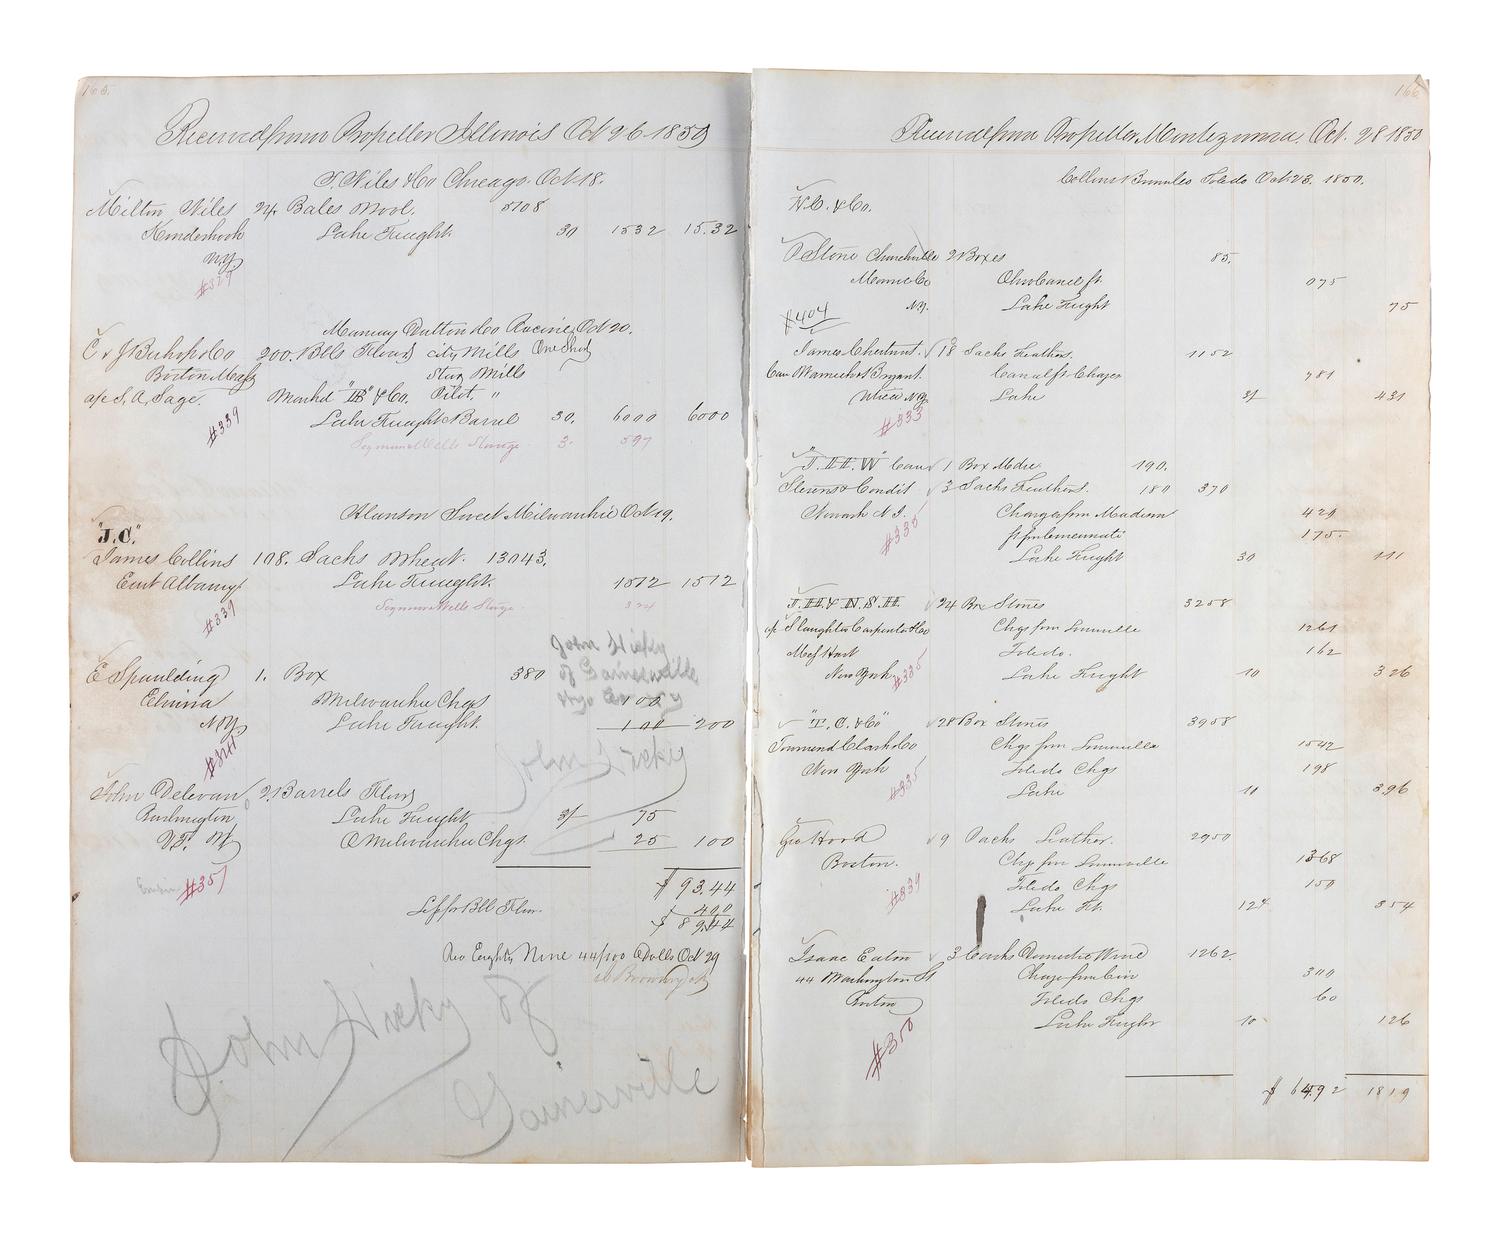 165.
Received from Propeller Illinois Oct 26 1850
S. Niles & Co Chicago. Oct 18.
Milton Niles 24. Bales Wool. 5108
Kinderhook Lake Freught. 30 1532 15.32
N.Y
#329
Murray Dutton & Co Racine, Oct 20.
C & J Bishop & Co 200. Bbls Flour City Mills One Shot
Boston Mass Star Mills
a/c S. A. Sage. Markd "IB" & Co. Pilot, "
Lake Freught Barrel 30. 6000 6000
#339
Seymour & Wells Storage 3. 597
Alanson Sweet Milwaukie Oct 19.
"J.C."
James Collins 108. Sacks Wheat. 13043.
East Albany Lake Freught. 1512 1512
#339
Seymour & Wells Storge. 324
John Hicky
of Gainesville
E Spaulding 1. Box 380
Elmira Milwaukie Chgs 100
NY Lake Freught. 100 200
#344
John Hicky
John Delevan 2. Barrels Flour
Burlington Lake Freught 3/ 75
Milwaukie Chgs. 25 100
#351
$ 93.44
Less for Bbl Flour. 400
$ 89.44
Rec Eighty Nine 44/100 Dolls Oct 29
John Hicky of
Gainerville
166
Received from Propeller Montezuma. Oct. 28 1850
Collins Toledo Oct 23. 1850.
& Co.
Stone Churchville 2 Boxes 85.
Monroe Co Ohio Canal ft. 075
NY. Lake Freight 75
$404
James Chestnut. 18 Sacks Feathers. 1152
Care Warnick & Bryant. Canal ft Chges 781
Utica NY. Lake 3/ 431
#333
"T. H. H. W" Care 1 Box Mdse 190.
Stevens & Condit 3 Sacks Feathers. 180 370
Newark N J. Charges from Madison 429
ft from Cincinnati 175.
#335
Lake Freight 30 111
T. H. H. & N. S. H. 24 Box Stones 3258
a/c Slaughter Carpenter & Co Chgs from Louisville 1261
Toledo. 162
New York Lake Freight 10 326
#335
"T. C. & Co" 28 Box Stones 3958
Townsend Clark & Co Chgs from Louisville 1542
New York Toledo Chgs 198
#335
Lake 10 396
Geo Hood 9 Packs Leather. 2950
Boston. Chgs from Louisville 1368
Toledo Chgs 150
#339
Lake Ft. 12 354
Isaac Eaton 3 Casks Domestic Wine 1262
44 Washington St Chgs from Cin 300
Boston Toledo Chgs 60
Lake Freight 10 126
#350
$ 64.92 1819